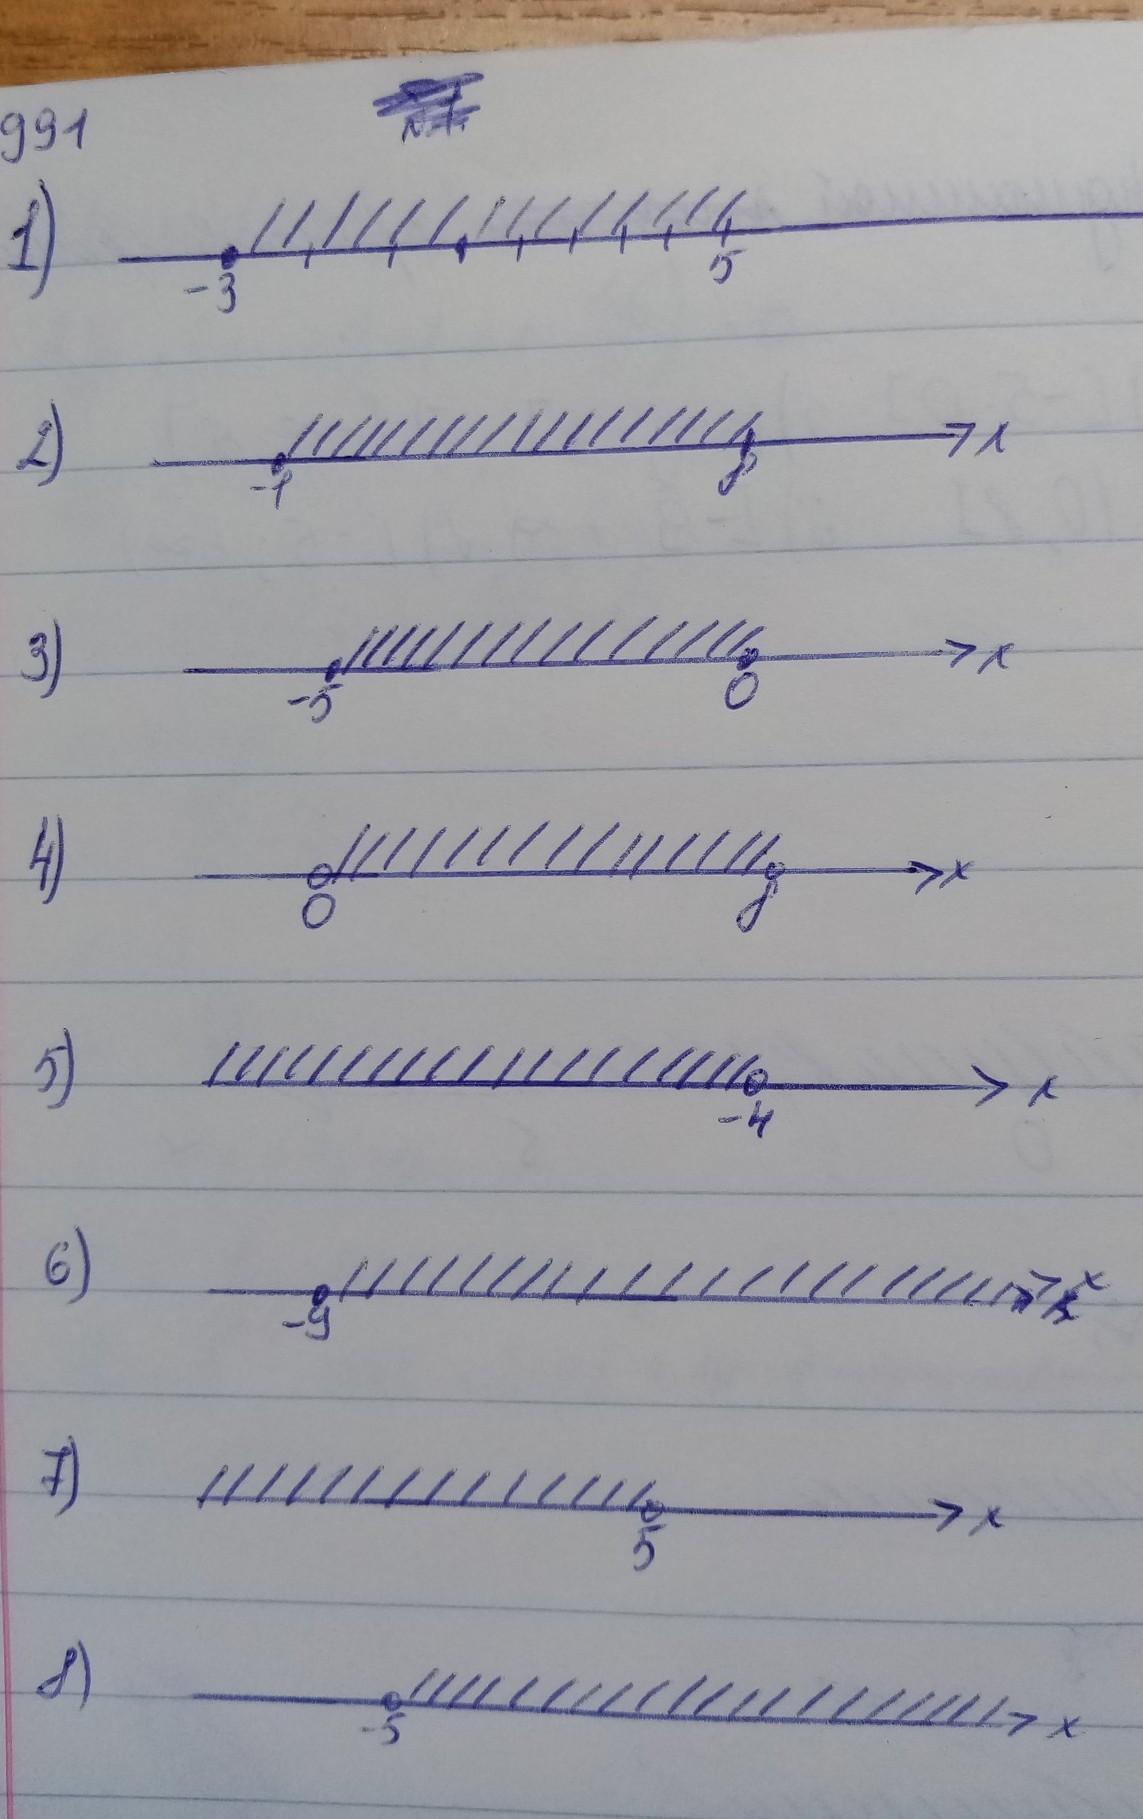 991
1)
-3 5
2)
x
-1 8
3)
x
-5 0
4)
x
0 8
5)
x
-4
6)
x
-9
7)
x
5
8)
x
-5